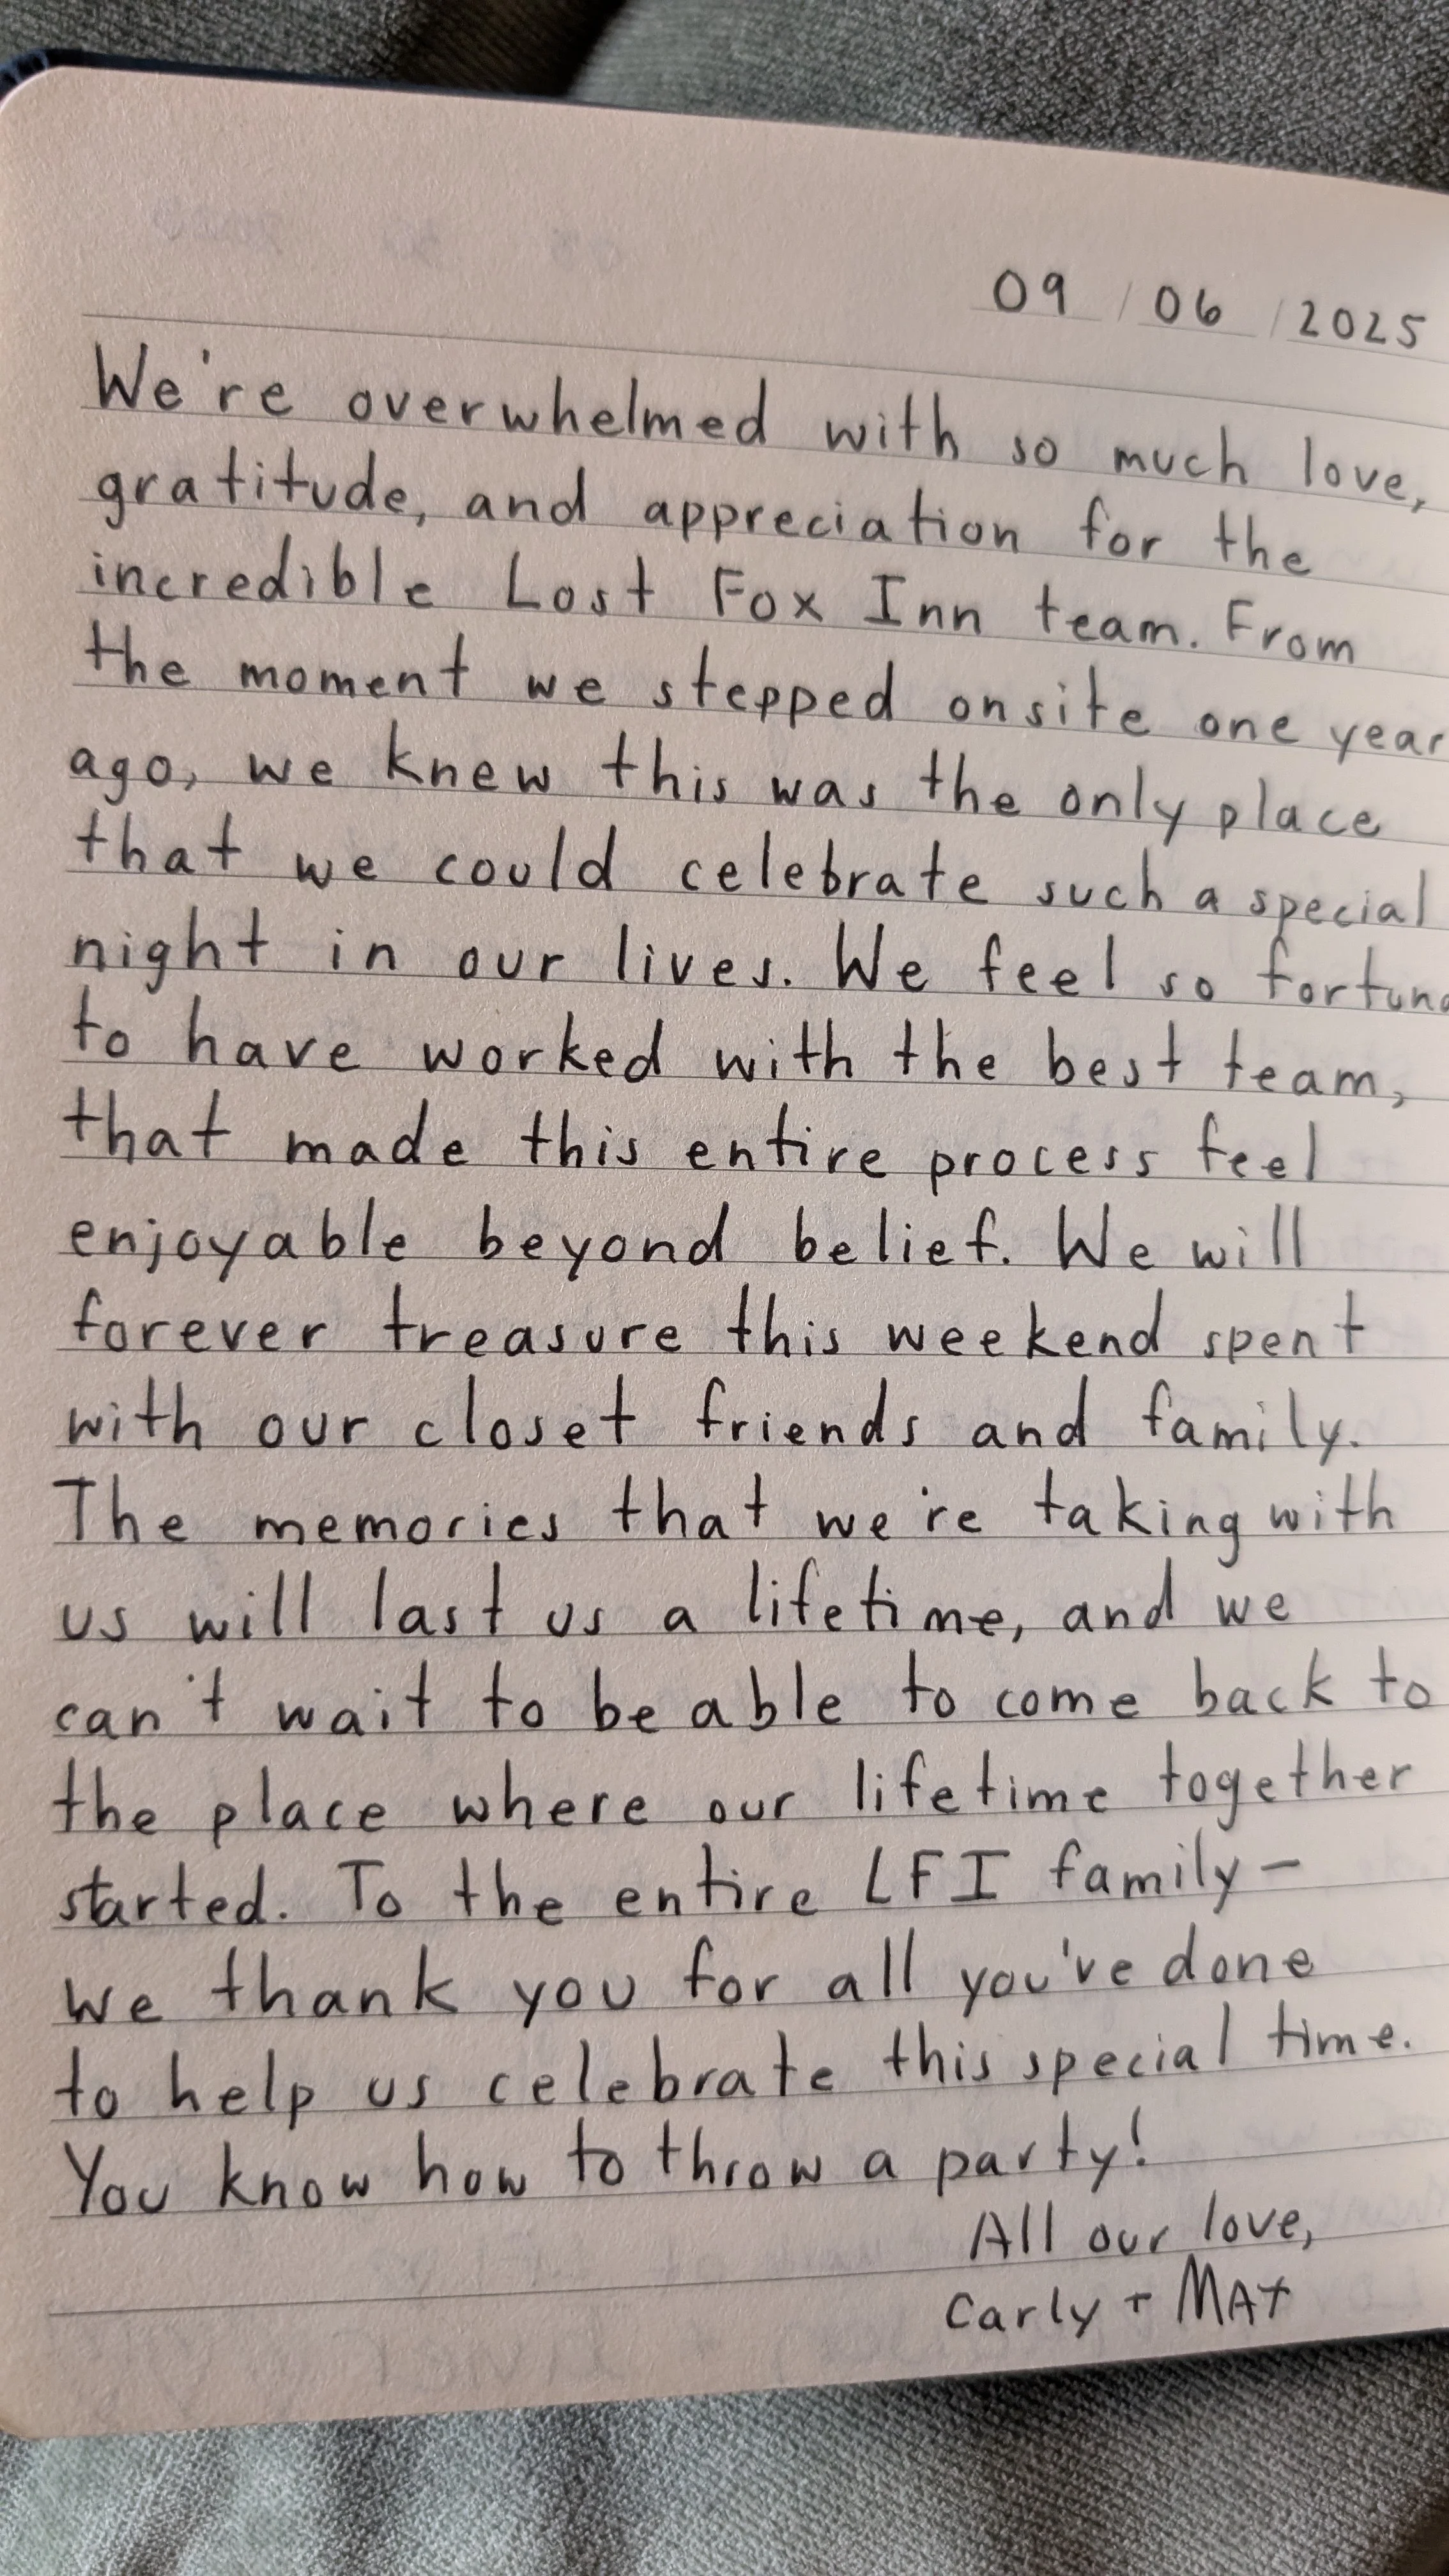 09 / 06 / 2025
We're overwhelmed with so much love,
gratitude, and appreciation for the
incredible Lost Fox Inn team. From
the moment we stepped onsite one year
ago, we knew this was the only place
that we could celebrate such a special
night in our lives. We feel so
to have worked with the best team,
that made this entire process feel
enjoyable beyond belief. We will
forever treasure this weekend spent
with our closet friends and family.
The memories that we're taking with
us will last us a lifetime, and we
can't wait to be able to come back to
the place where our lifetime together
started. To the entire LFI family-
we thank you for all you've done
to help us celebrate this special time.
You know how to throw a party!
All our love,
Carly + MAT